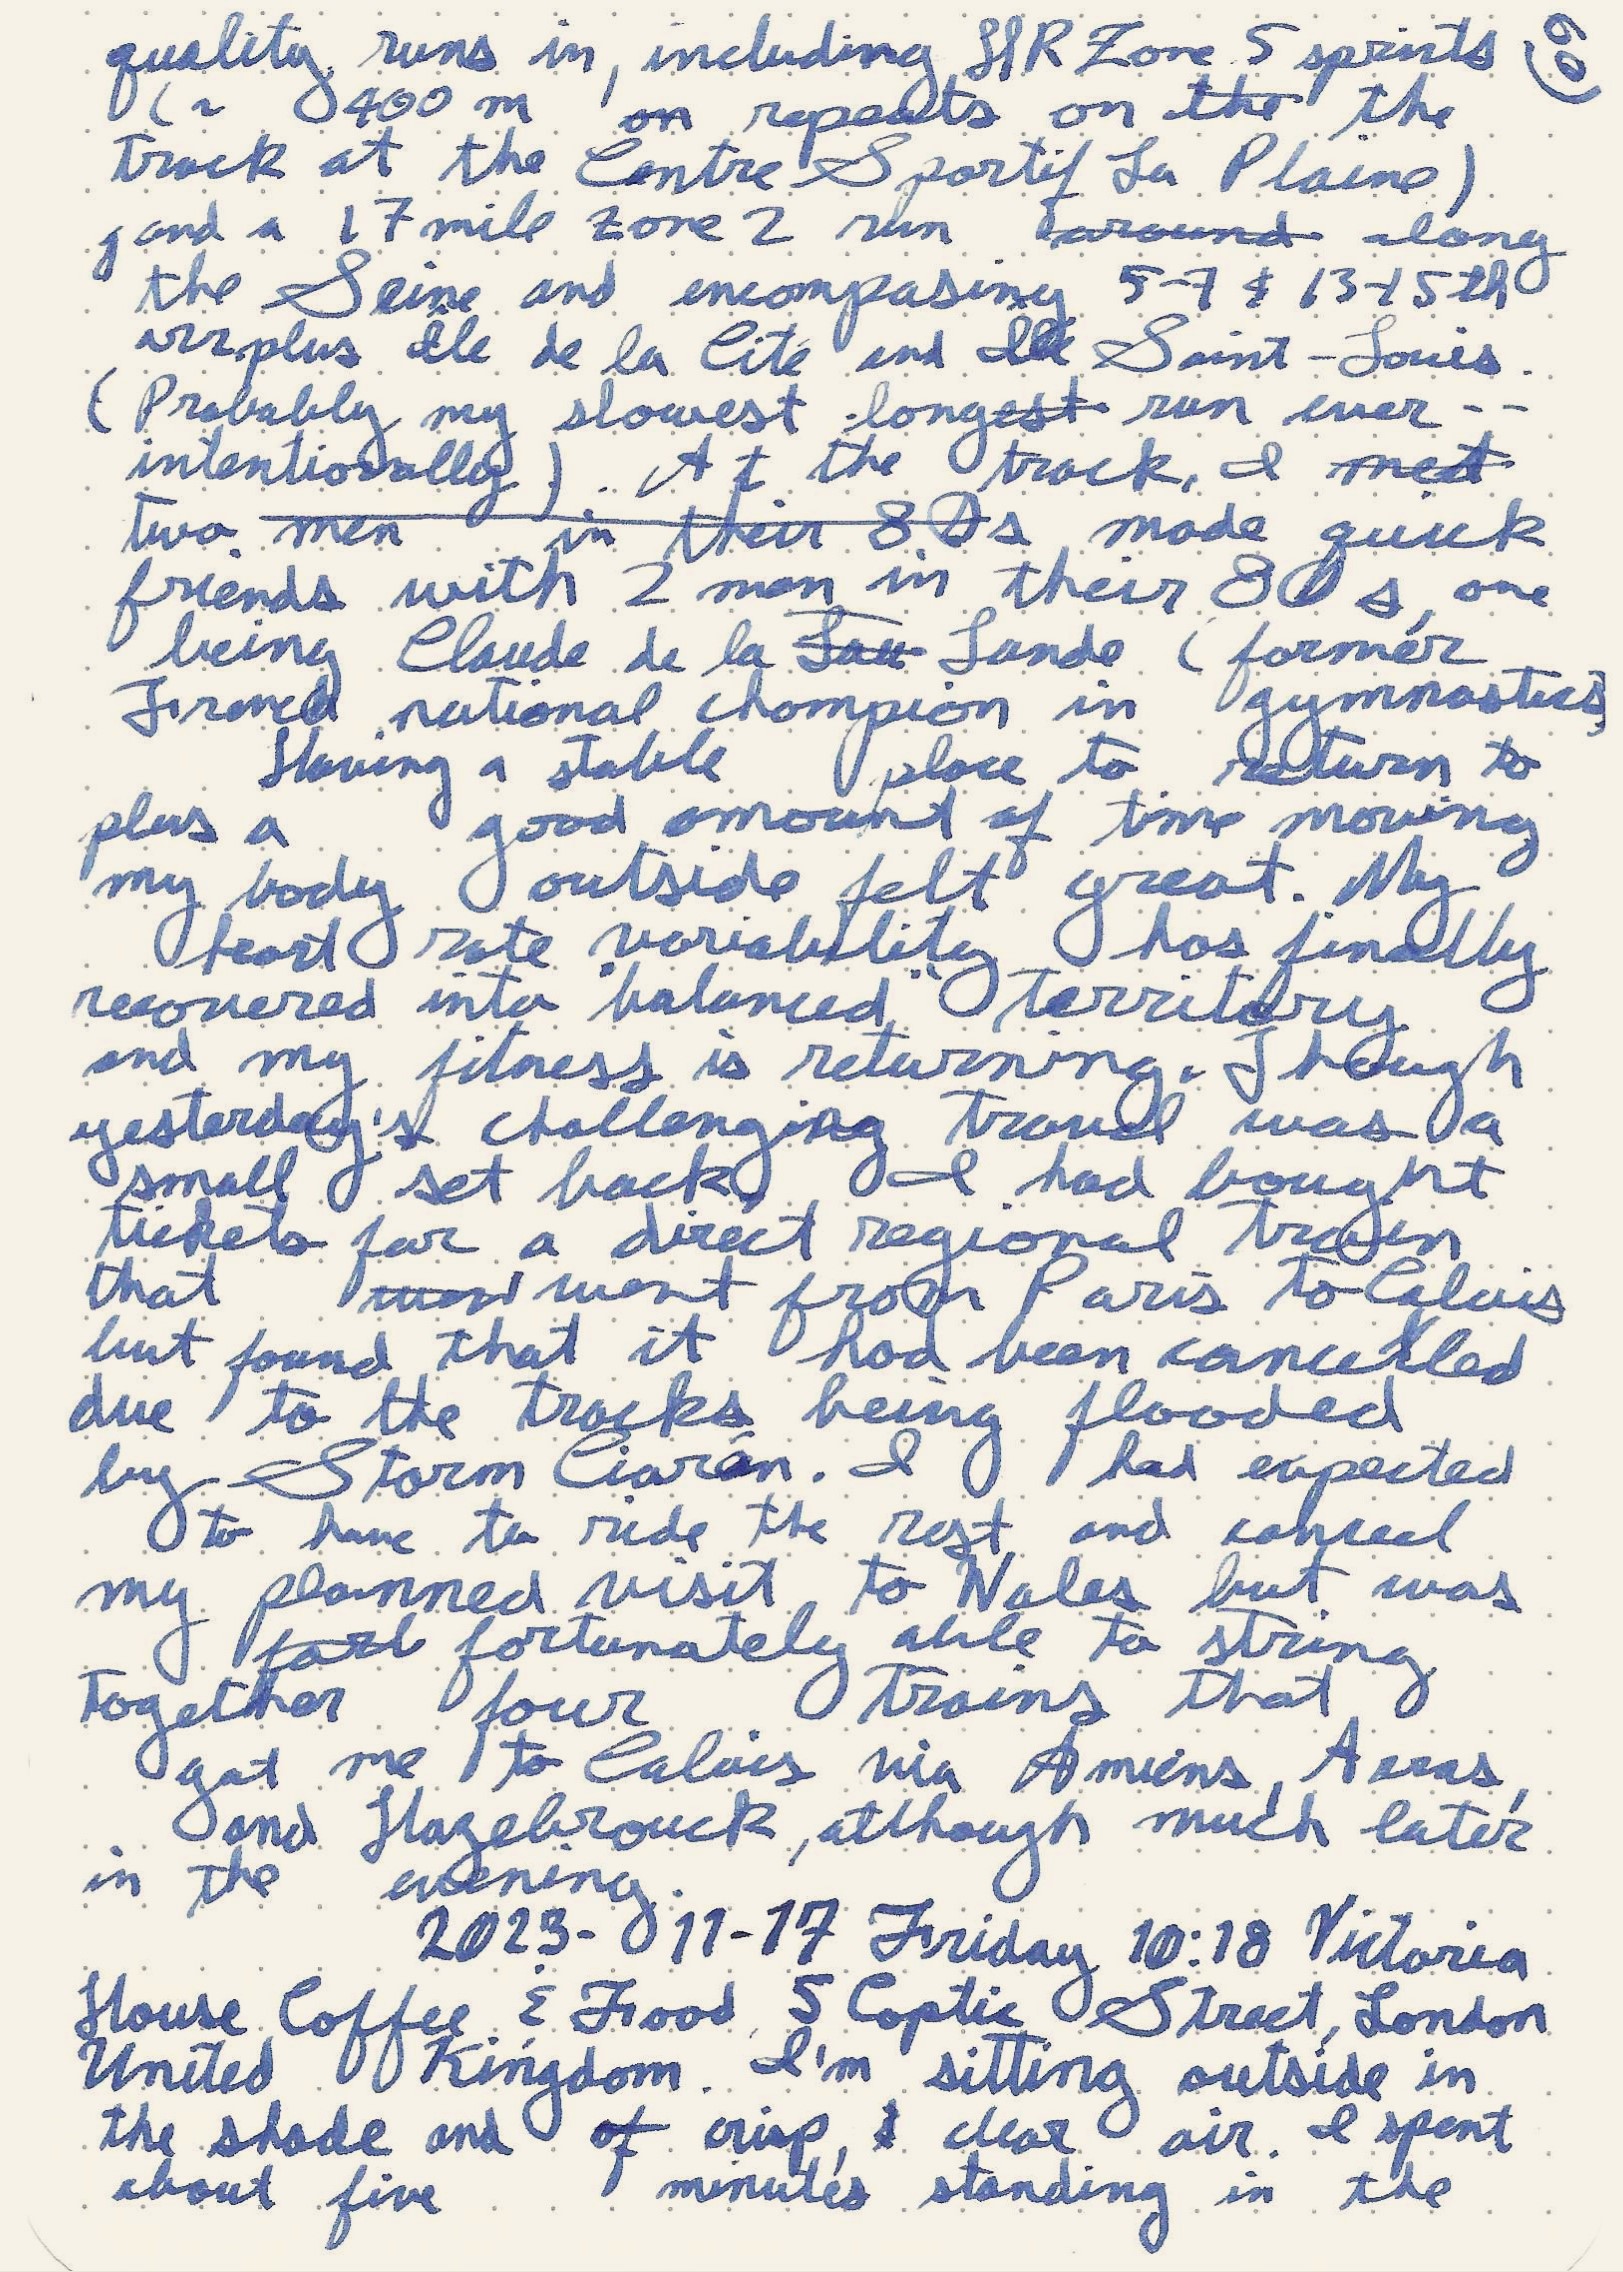 quality runs in, including HR Zone 5 sprints (60)
(~ 400 m on repeats on the the
track at the Centre Sportif La Plaine)
and a 17 mile zone 2 run around along
the Seine and encompasing 5-7 & 13-15th
arr. plus île de la Cité and Île Saint-Louis.
(Probably my slowest longest run ever --
intentionally). At the track, I met
two men in their 80s made quick
friends with 2 men in their 80s, one
being Claude de la Lau Lande (former
French national champion in gymnastics)
Having a stable place to return to
plus a good amount of time moving
my body outside felt great. My
heart rate variability has finally
recovered into "balanced" territory
and my fitness is returning. Though
yesterday's challenging travel was a
small set back, I had bought
tickets for a direct regional train
that went from Paris to Calais
but found that it had been cancelled
due to the tracks being flooded
by Storm Ciarán. I had expected
to have to ride the rest and cancel
my planned visit to Wales but was
fortunately able to string
together four trains that
got me to Calais via Amiens, Arras,
and Hazebrouck, although much later
in the evening.
2023-11-17 Friday 10:18 Victoria
House Coffee & Food, 5 Coptic Street, London
United Kingdom. I'm sitting outside in
the shade and of crisp, & clear air. I spent
about five minutes standing in the